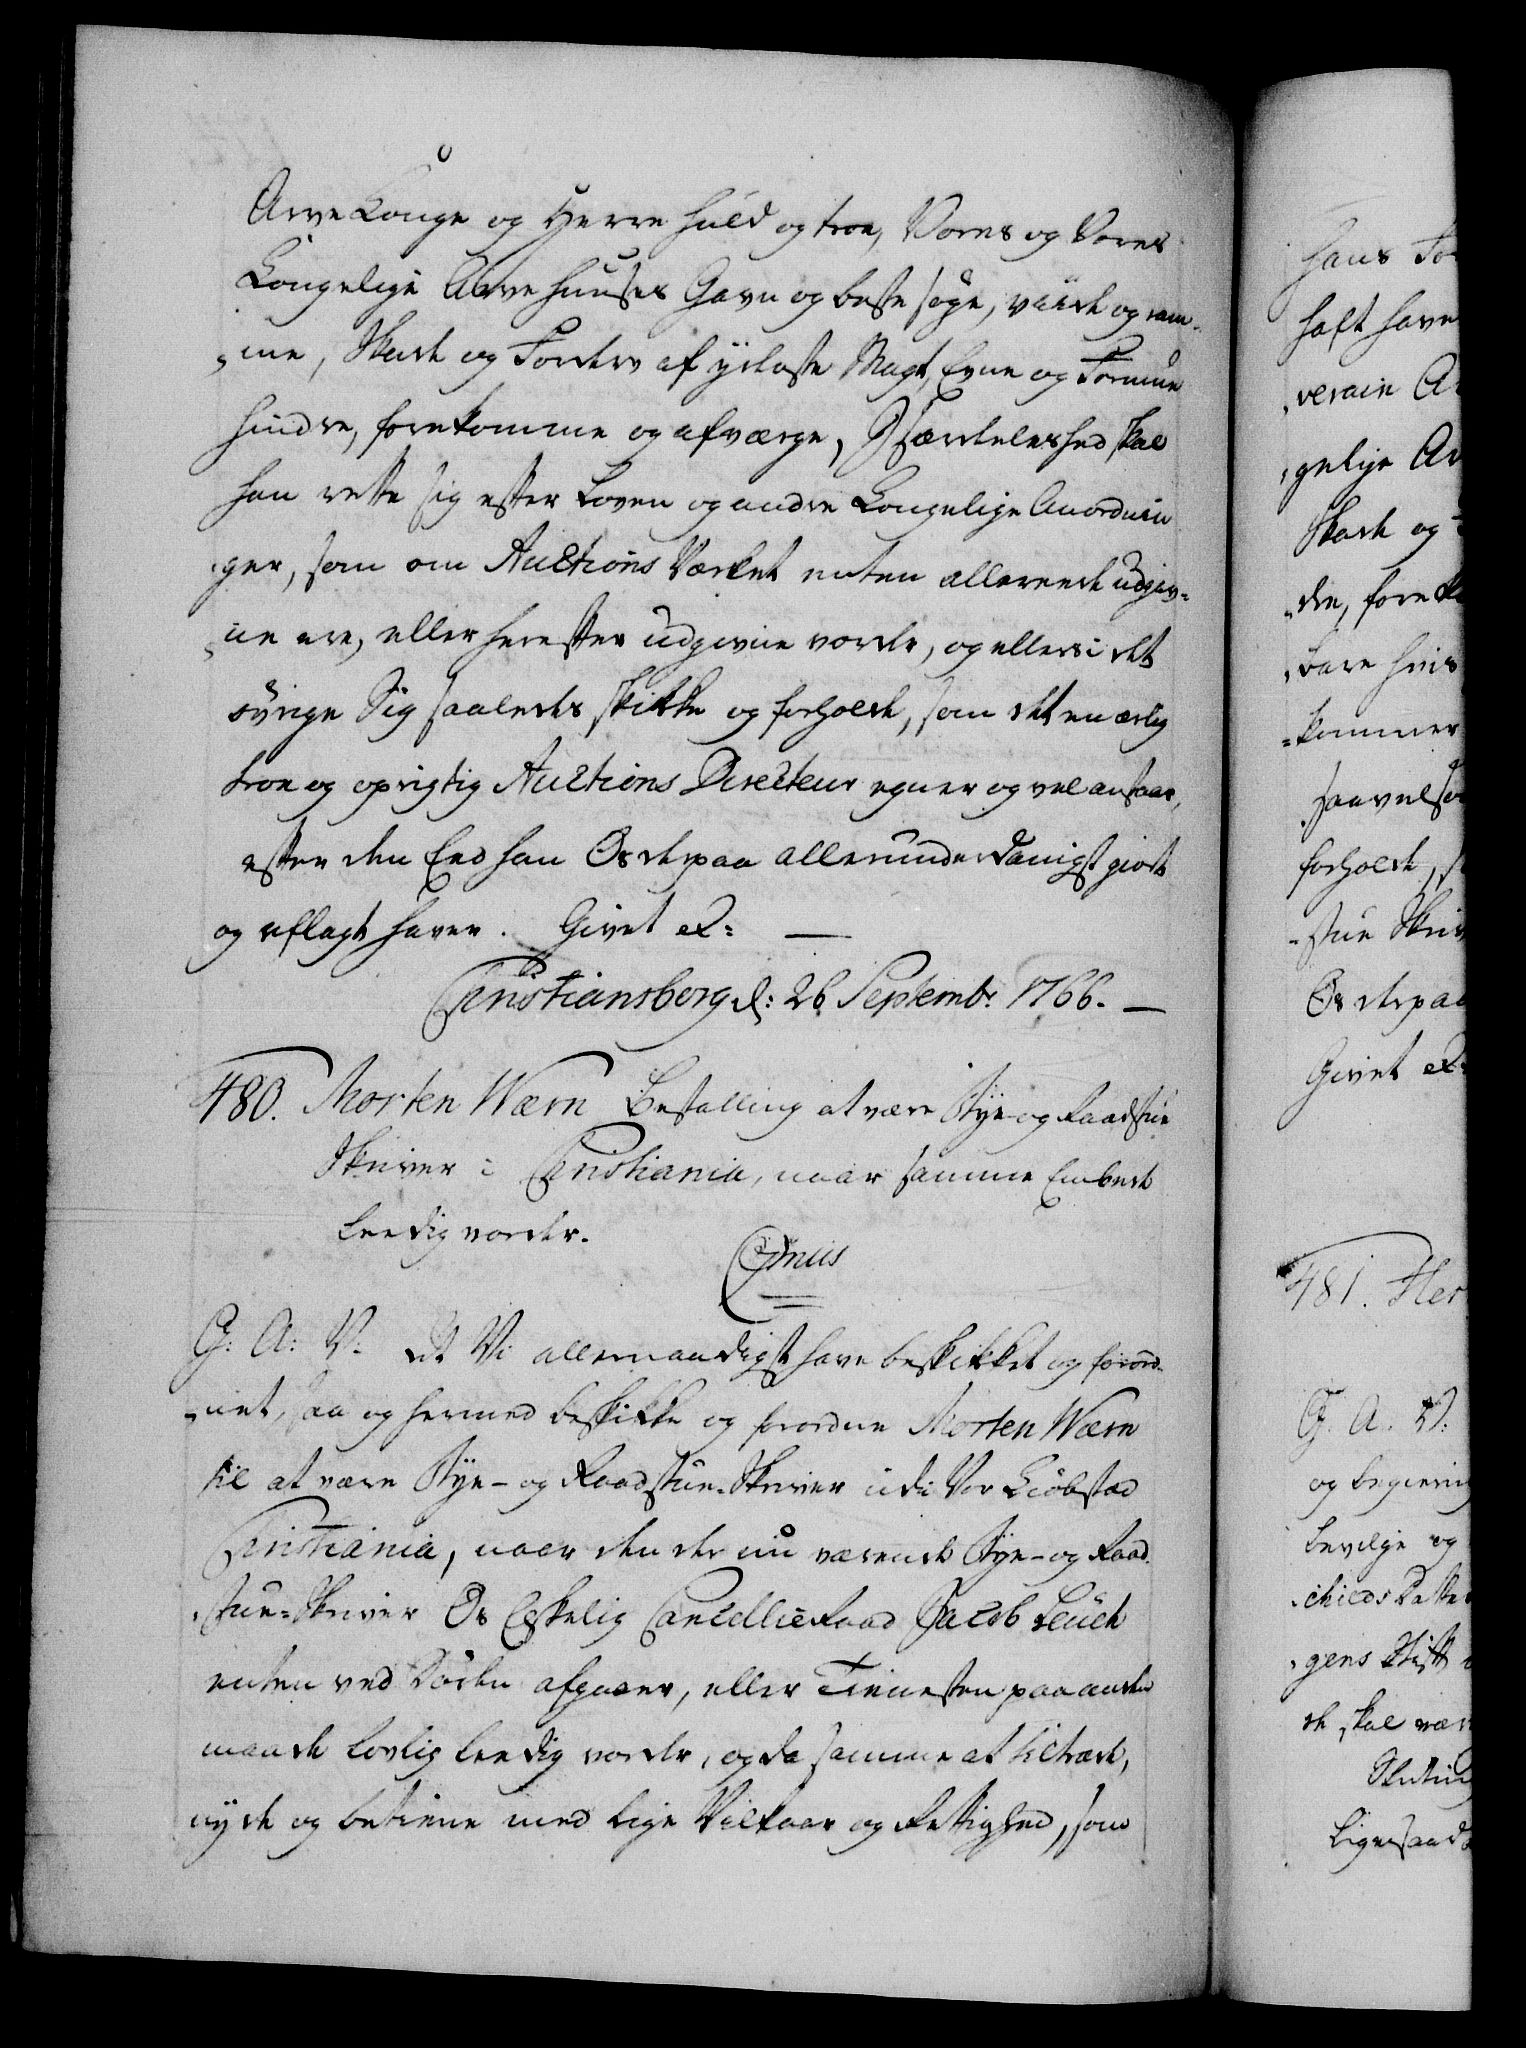 Arve Konge og Herre huld og troe, Vores og Vores
Kongelige Arve Huuses Gavn og beste søge, viide og ram¬
¬me, Skade og Forderv af yderste Magt, Evne og Formue
hindre, forekomme og afværge, I særdeleshed skal
han rette sig efter Loven og andre Kongelige Anordnin
ger, som om Auctions Værket enten allereede udgiv¬
¬ne ere, eller herefter udgivne vorde, og ellers i det
øvrige Sig saaledes skikke og forholde, som det en ærlig
troe og oprigtig Auctions Directeur egner og vel anstaar,
efter den Eed han Os derpaa allerunderdanigst giort
og aflagt haver. Givet etc: —
Christiansborg d: 26 Septembr: 1766. —
480. Morten Wærn Bestalling at være Bye- og Raadstue
Skriver i Christiania, naar samme Embede
leedig vorder.
G: A: V. At Vi allernaadigst have beskikket og forord¬
¬net, saa og hermed beskikke og forordne Morten Wærn
til at være Bye- og Raadstue-Skriver udi Vor Kiøbstad
Christiania, naar den der nu værende Bye- og Raad
¬stue-Skriver Os Elskelig Cancellie Raad Jacob Leuch
enten ved Døden afgaaer, eller Tienesten paa anden
maade lovlig leedig vorder, og da samme at tiltræde,
nyde og betiene med lige Vilkaar og Rettighed, som
hans For
haft have
¬verain Ar
¬gelige Ar
Skade og
¬dre, forek
¬bare hvis
¬kommer
saavelso
forholde, s
¬stue Skriv
Os derpaa
Givet etc:
481. Her
G. A. V.
og begiering
bevilge og
¬childs Datter
¬gens Stift
de skal vær
Ligesaad